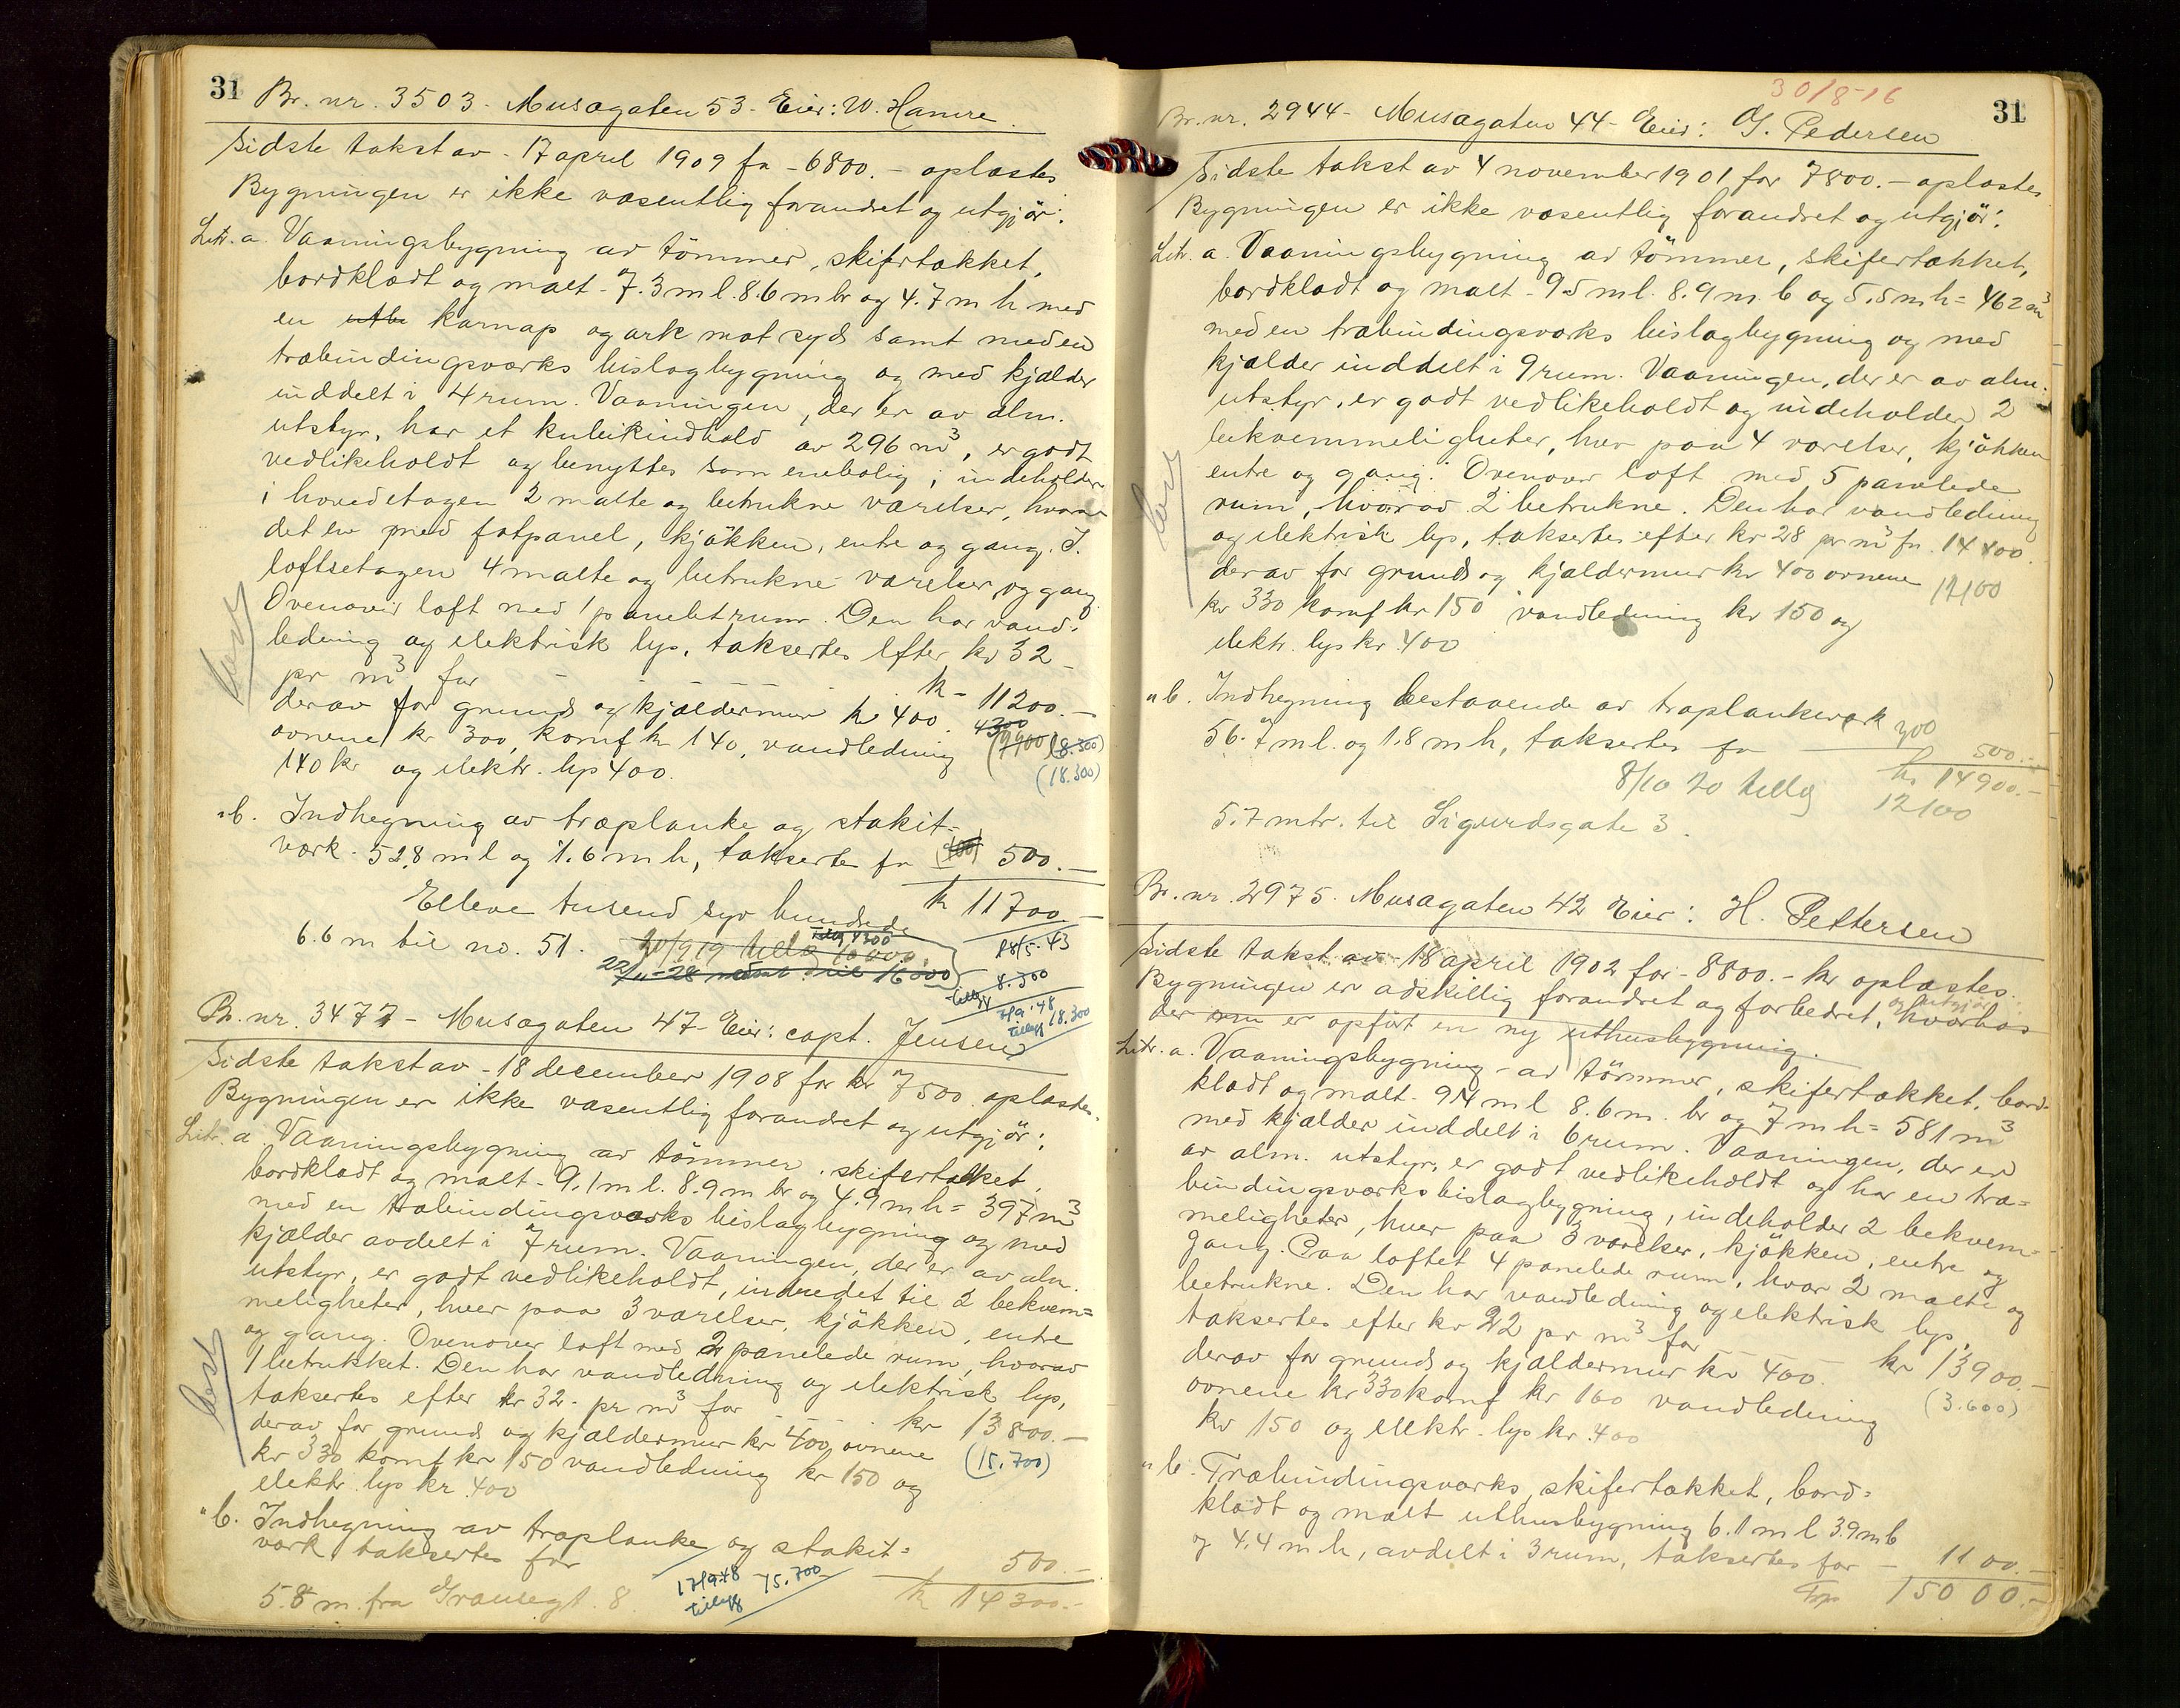 31
Br. nr. 3503 - Musægaten 53 - Eier: W. Hamre.
Sidste takst av - 17 april 1909 fr - 6800. - oplæstes
Bygningen er ikke væsentlig forandret og utgjör:
Litr. a. Vaaningsbygning av tömmer, skifertækket,
bordklædt og malt - 7.3 m l. 8.6 m br og 4.7 m h med
en karnap og ark mot syd samt med en
træbindingsværks bislagbygning og med kjælder
inddelt i 4 rum. Vaaningen, der er av alm.
utstyr, har et kubikindhold av 296 m3, er godt
vedlikeholdt og benyttes som enebolig; indeholder
i hovedetagen 2 malte og betrukne værelser, hvorav
det en med fotpanel, kjökken, entre og gang. I
loftsetagen 4 malte og betrukne værelser og gang
Ovenover loft med 1 panelet rum. Den har vand-
ledning og elektrisk lys, taksertes efter kr 32 -
pr m3 for - - - - kr - 11200. -
derav for grund og kjældermur kr 400. 4300
ovnene kr 300, komf kr 140, vandledning (7900) (8.300)
140 kr og elektr. lys 400. (18.300)
" b. Indhegning av træplanke og stakit=
værk - 52,8 m l og 1.6 m h, taksertes fr (400) 500. -
Elleve tusend syv hundrede kr 11700. -
6.6 m til no. 51. 20/9 19 tillæg 10000. 18/5-43
22/11-28 nedsat til 16000 tillegg 8.300
17/9-48 tillegg 18.300
Br. nr. 3477 - Musægaten 47 - Eier: capt. Jensen
Sidste takst av - 18 december 1908 for kr 7500 oplæstes.
Bygningen er ikke væsentlig forandret og utgjör:
Litr. a. Vaaningsbygning av tömmer, skifertækket,
bordklædt og malt - 9.1 m l. 8.9 m br og 4.9 m h = 397 m3
med en træbindingsværks bislagbygning og med
kjælder avdelt i 7 rum. Vaaningen, der er av alm.
utstyr, er godt vedlikeholdt, indredet til 2 bekvem=
meligheter, hver paa 3 værelser, kjökken, entre
og gang. Ovenover loft med 2 panelede rum, hvorav
1 betrukket. Den har vandledning og elektrisk lys,
taksertes efter kr 32 - pr m3 for - - - kr 13800. -
derav for grund og kjældermur kr 400 ovnene (15.700)
kr 330 komf kr 150 vandledning kr 150 og
elektr. lys kr 400
" b. Indhegning av træplanke og stakit=
værk taksertes for 500. -
17/9-48 tillegg 15.700 kr 14300. -
5.8 m. fra Gransegt. 8
30/8-16
31
Br. nr. 2944 - Musægaten 44 - Eier: G. Pedersen
Sidste takst av 4 november 1901 for 7800. - oplæstes
Bygningen er ikke væsentlig forandret og utgjör:
Litr. a. Vaaningsbygning av tömmer, skifertækket,
bordklædt og malt - 9.5 m l. 8.9 m. b og 5.5 m h = 462 m3
med en træbindingsværks bislagbygning og med
kjælder inddelt i 9 rum. Vaaningen, der er av alm.
utstyr, er godt vedlikeholdt og indeholder 2
bekvemmeligheter, hver paa 4 værelser, kjökken
entre og gang. Ovenover loft med 5 panelede
rum, hvorav 2 betrukne. Den har vandledning
og elektrisk lys, taksertes efter kr 28 pr m3 fr. 14400
derav for grund og kjældermur kr 400 ovnene
kr 330 komf kr 150 vandledning kr 150 og
elektr. lys kr 400
" b. Indhegning bestaaende av træplankeværk
56.7 m l. og 1.8 m h, taksertes for 500. -
kr 14900. -
8/10 20 tillæg 12100
5.7 mtr. til Sigurdsgate 3.
Br. nr. 2975. Musægaten 42 Eier: H. Pettersen
Sidste takst av - 18 april 1902 for - 8800. - kr oplæstes.
Bygningen er adskillig forandret og forbedret, og utgjör hvorhos
der er opfört en ny uthusbygning.
Litr. a. Vaaningsbygning - av tömmer, skifertækket, bord-
klædt og malt - 9.4 m l 8.6 m. br og 7 m h = 581 m3
med kjælder inddelt i 6 rum. Vaaningen, der er
av alm. utstyr, er godt vedlikeholdt og har en træ=
bindingsværks bislagbygning, indeholder 2 bekvem=
meligheter, hver paa 3 værelser, kjökken, entre og
gang. Paa loftet 4 panelede rum, hvor 2 malte og
betrukne. Den har vandledning og elektrisk lys,
taksertes efter kr 22 pr m3 for - - kr 13900. -
derav for grund og kjældermur kr 400. (3.600)
ovnene kr 330 komf kr 160 vandledning
kr 150 og elektr. lys kr 400
" b. Træbindingsværks, skifertækket, bord=
klædt og malt uthusbygning 6.1 m l 3.9 m b
og 4.4 m h, avdelt i 3 rum, taksertes for - 1100. -
15000. -